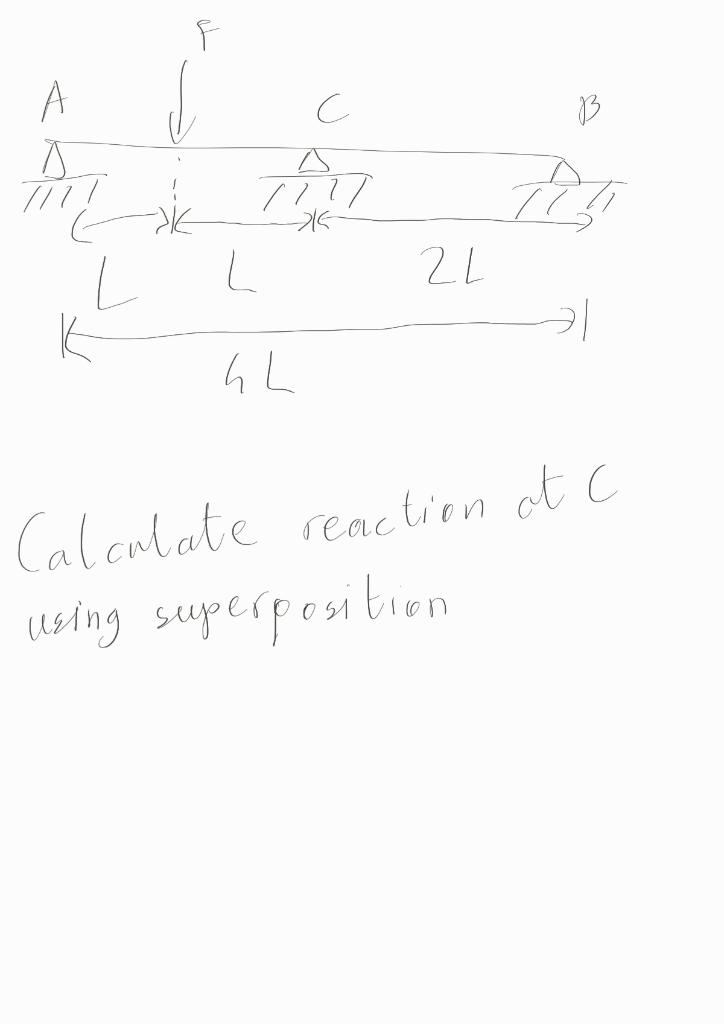 F
A
C
B
L
L
2L
4L
Calculate reaction at C
using superposition